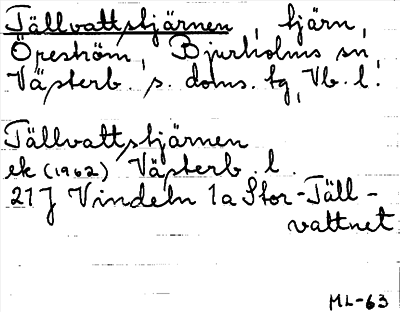 Tällvattstjärnen, tjärn,
Öreström, Bjurholms sn,
Västerb. s. doms. tg, Vb. l.
Tällvattstjärnen
ek (1962) Västerb. l.
21J Vindeln 1a Stor-Täll-
vattnet
ML-63